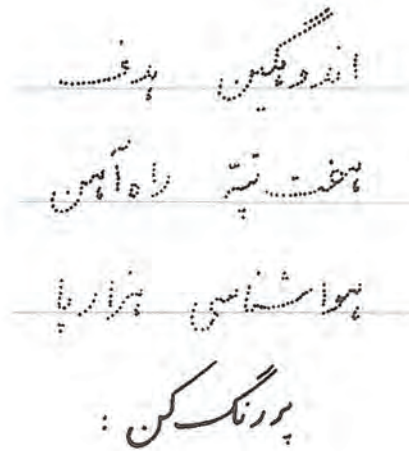 اندوهگین هدف
هفت تپّه راه آهن
هواشناسی هزارپا
پررنگ کن :